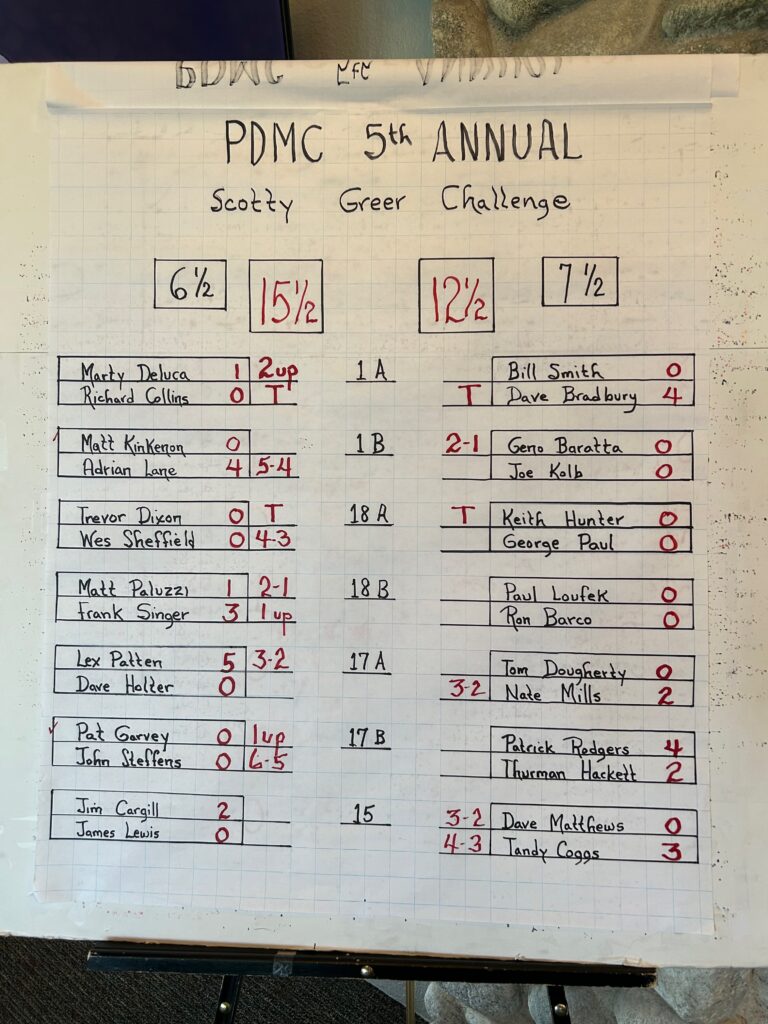 PDMC 5th ANNUAL
Scotty Greer Challenge
6½ 15½ 12½ 7½
Marty Deluca 1 2up 1 A Bill Smith 0
Richard Collins 0 T T Dave Bradbury 4
Matt Kinkenon 0 1 B 2-1 Geno Baratta 0
Adrian Lane 4 5-4 Joe Kolb 0
Trevor Dixon 0 T 18 A T Keith Hunter 0
Wes Sheffield 0 4-3 George Paul 0
Matt Paluzzi 1 2-1 18 B Paul Loufek 0
Frank Singer 3 1up Ron Barco 0
Lex Patten 5 3-2 17 A Tom Dougherty 0
Dave Holter 0 3-2 Nate Mills 2
✓ Pat Garvey 0 1up 17 B Patrick Rodgers 4
John Steffens 0 6-5 Thurman Hackett 2
Jim Cargill 2 15 3-2 Dave Matthews 0
James Lewis 0 4-3 Tandy Coggs 3